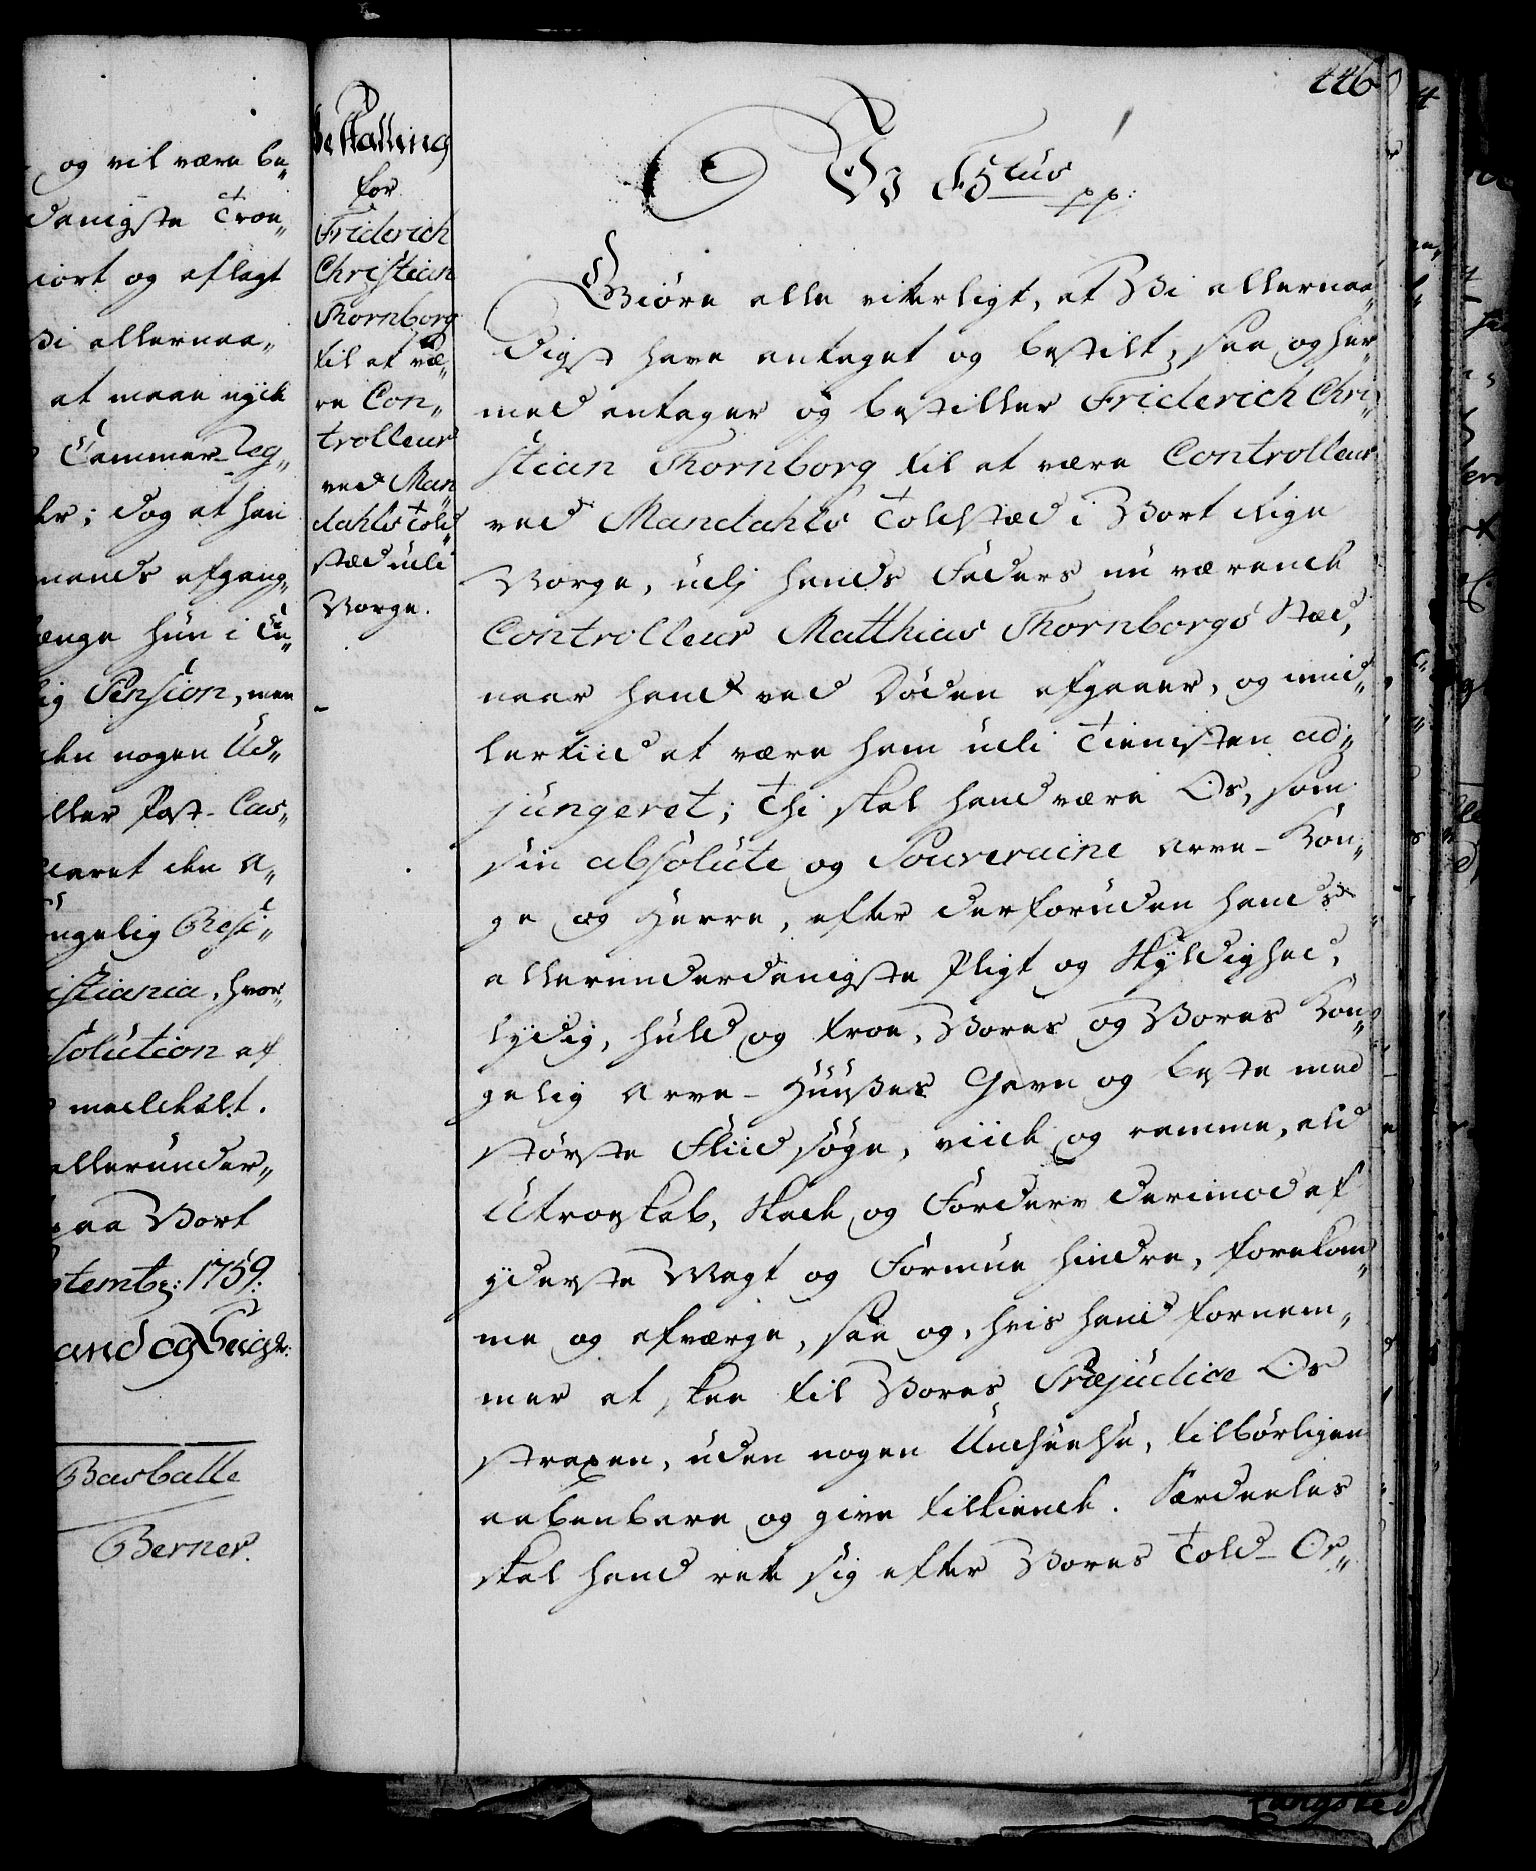 og vil være be„
danigste Troe„
iort og aflagt
Vi allernaa„
at maae nyde
Cammer-Teg„
er; dog at han
mands afgang,
længe hun i En„
ig Pension, men
den nogen Ud„
eller Post-Cas„
ngelig Resi„
istiania, hvor„
solution af
meddeelt.
allerunder„
paa Vort
ptembr: 1759.
and og Seigl:
Barballe
Berner.
Bestalling
for
Friderich
Christian
Thornborg
til at væ„
re Con„
trolleur
ved Man„
dahls Told„
stæd udi
Norge.
446
Vi F 5tus pp:
Giøre alle vitterligt, at Vi allernaa„
digst have antaget og bestilt, saa og her„
med antager og bestiller Friderich Chri„
stian Thornborg til at være Controlleur
ved Mandahls Toldstæd i Vort Rige
Norge, udj hands Faders nu værende
Controlleur Matthias Thornborgs Stæd,
naar hand ved Døden afgaaer, og imid„
lertiid at være ham udi Tienisten ad„
jungeret; Thi skal hand være Os, som
sin absolute og Souveraine Arve-Kon„
ge og Herre, efter derforuden hands
allerunderdanigste Pligt og Skyldighed,
lydig, huld og troe, Vores og Vores Kon„
gelig Arve-Huuses Gavn og beste med
største Fliid søge, viide og ramme, ald
Utroeskab, Skade og Forderv derimod af
yderste Magt og Formue hindre, forekom„
me og afværge, saa og, hvis hand fornem„
mer at skee til Vores Præjudice Os
straxen, uden nogen Undseelse, tilbørligen
aabenbare og give tilkiende. Særdeeles
skal hand rette sig efter Vores Told-Or„